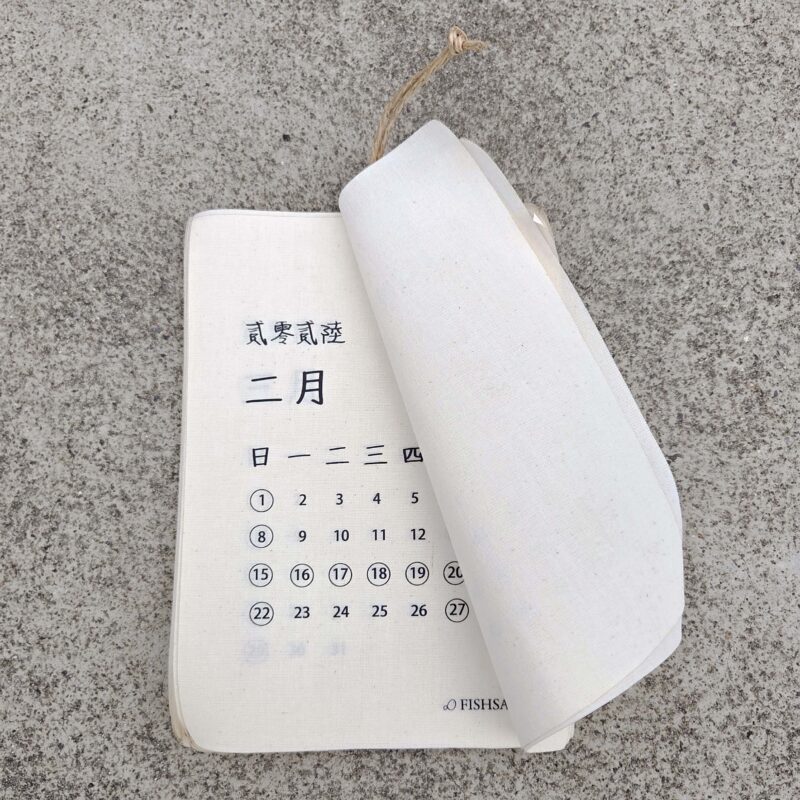 貳零貳陸
二月
日 一 二 三 四
1 2 3 4 5
8 9 10 11 12
15 16 17 18 19 20
22 23 24 25 26 27
29 30 31
FISHSA